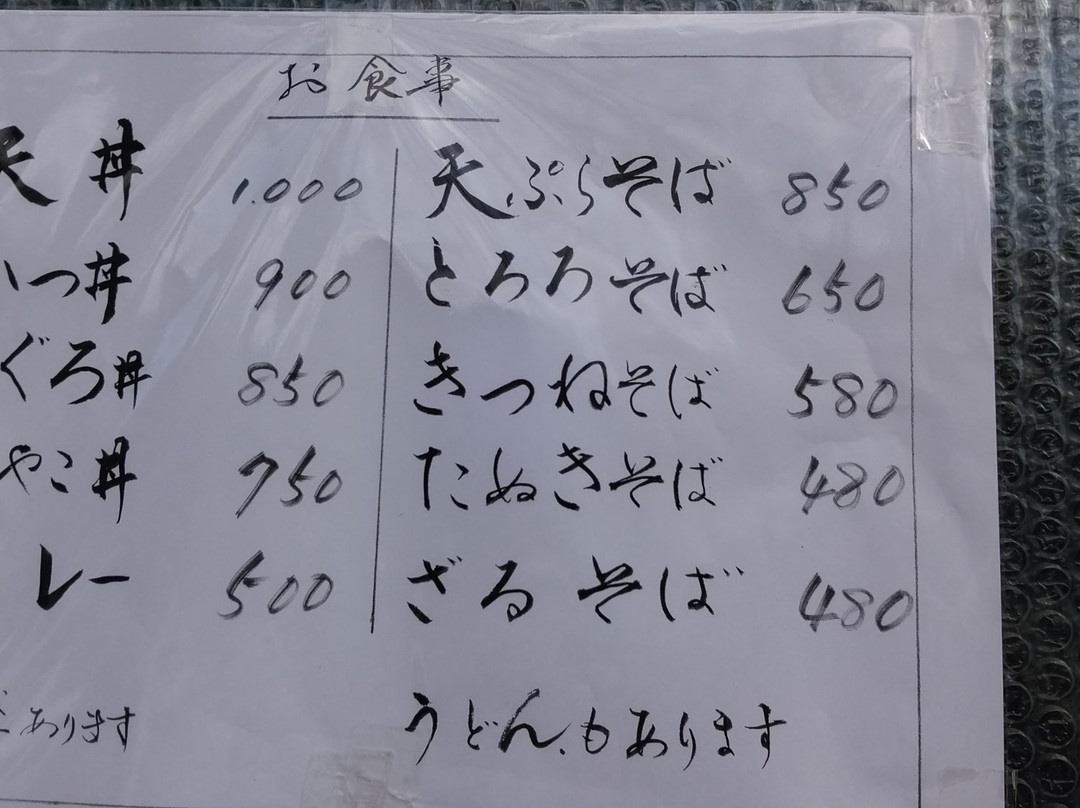 お食事
天丼 1.000
つ丼 900
ぐろ丼 850
やこ丼 750
レー 500
あります
天ぷらそば 850
とろろそば 650
きつねそば 580
たぬきそば 480
ざるそば 480
うどん、もあります